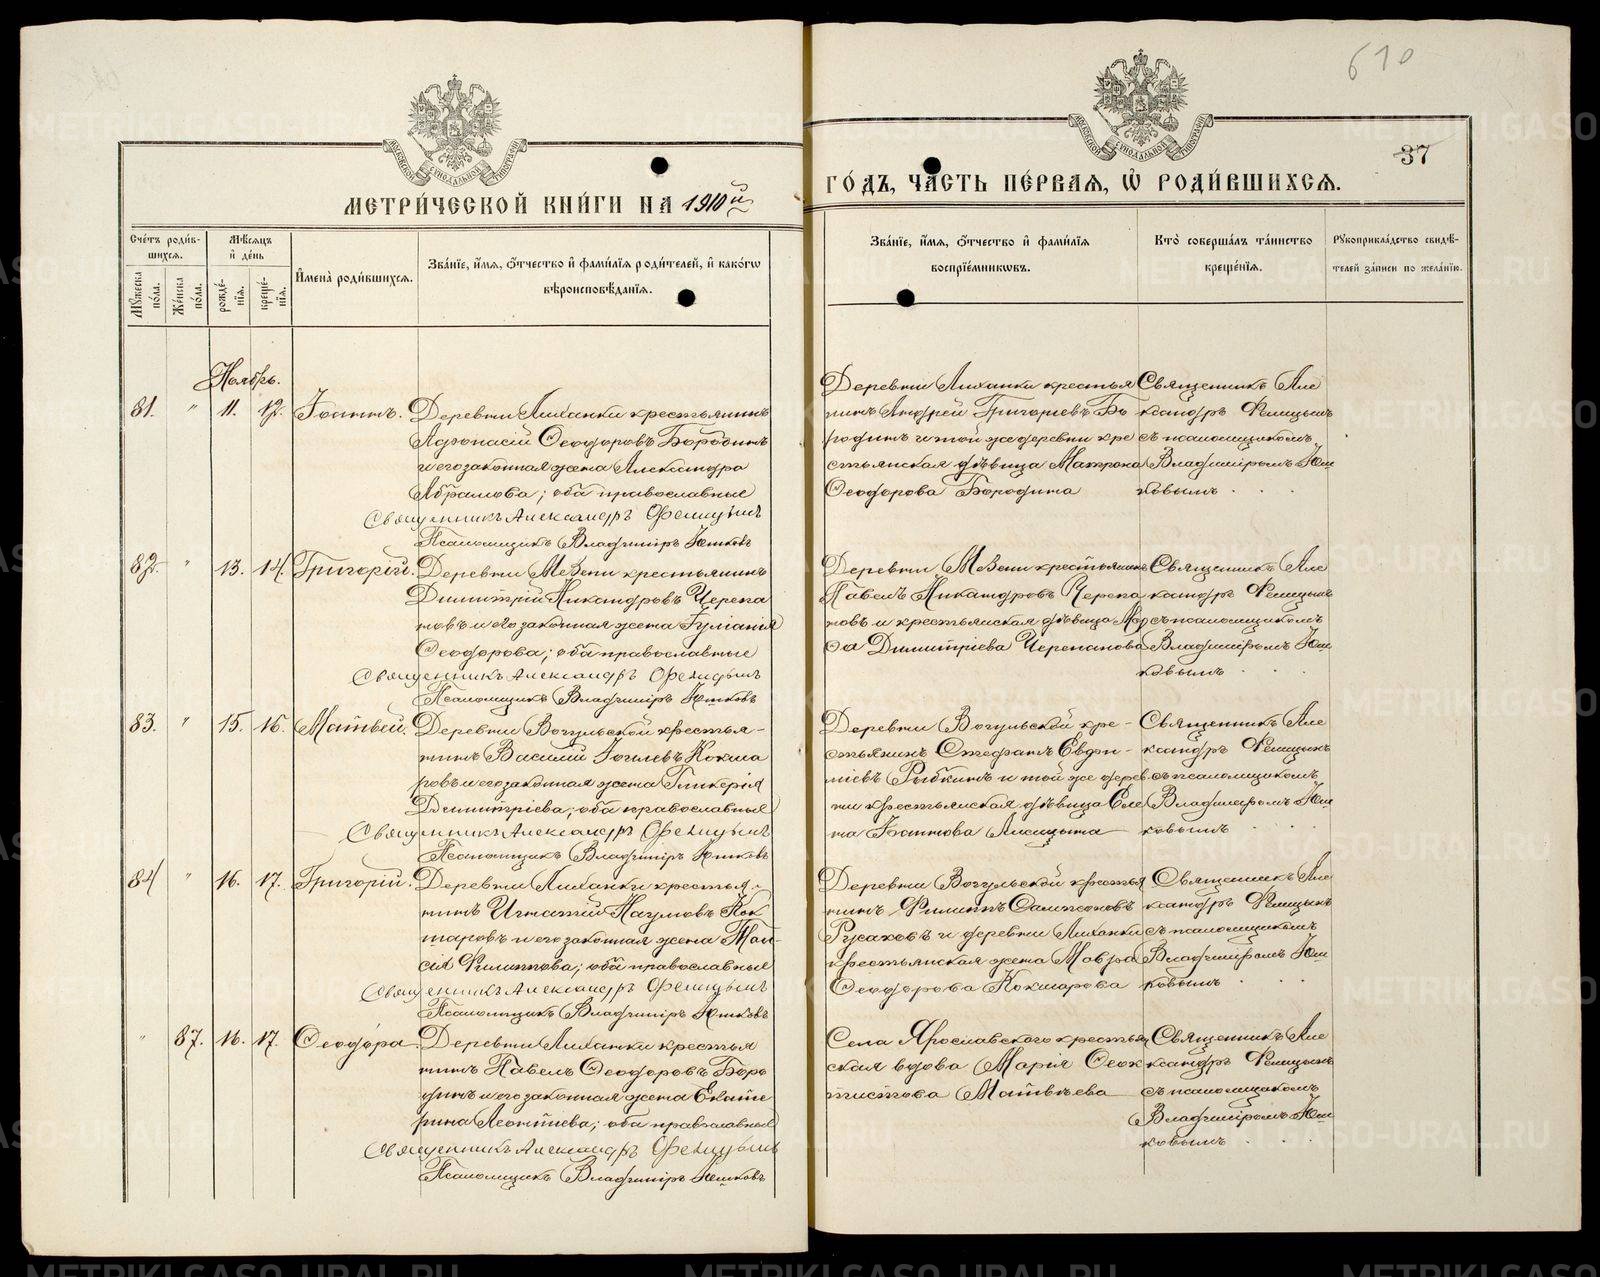 610
37
МЕТРИ́ЧЕСКОЙ КНИ́ГИ НА 1910й
ГО́ДЪ, ЧА́СТЬ ПЕ́РВАЯ, Ѿ РОДИ́ВШИХСЯ.
Сче́тъ роди́в-
шихся.
Мꙋжеска по́ла.
Же́нска по́ла.
Мѣ́сяцъ
и҆ де́нь
рожде́-нїя.
креще́-нїя.
И҆мена̀ роди́вшихся.
Зва́нїе, и҆́мя, ѻ҆́тчество и҆ фами́лїя роди́телей, и҆ како́гѡ
вѣроисповѣ́данїя.
Зва́нїе, и҆́мя, ѻ҆́тчество и҆ фами́лїя
воспрїе́мниковъ.
Кто̀ соверша́лъ та́инство
креще́нїя.
Рꙋкоприкла́дство свидѣ́-
телей за́писи по жела́нїю.
Ноябрь.
81. " 11. 12. Іоаннъ.
Деревни Лиханки крестьянинъ
Афонасій Ѳеодоровъ Бородинъ
и его законная жена Александра
Абрамова; оба православные
Священникъ Александръ Филицынъ
Псаломщикъ Владиміръ Юшковъ
Деревни Лиханки крестья
нинъ Андрей Григорьевъ Бо
родинъ и той же деревни кре
стьянская дѣвица Матрона
Ѳеодорова Бородина
Священникъ Але
ксандръ Филицынъ
съ псаломщикомъ
Владиміромъ Юш
ковымъ
82. " 13. 14. Григорій.
Деревни Мезени крестьянинъ
Димитрій Никандровъ Черепа
новъ и его законная жена Іуліанія
Ѳеодорова; оба православные
Священникъ Александръ Филицынъ
Псаломщикъ Владиміръ Юшковъ
Деревни Мезени крестьянинъ
Павелъ Никандровъ Черепа
новъ и крестьянская дѣвица
Димитріева Черепанова
Священникъ Але
ксандръ Филицынъ
съ псаломщикомъ
Владиміромъ Юш
ковымъ
83. " 15. 16. Матвей.
Деревни Вогульской крестья-
нинъ Василій Кокша
ровъ и его законная жена Гликерія
Димитріева; оба православные
Священникъ Александръ Филицынъ
Псаломщикъ Владиміръ Юшковъ
Деревни Вогульской кре-
стьянинъ Стефанъ Евфи-
міевъ Рыбкинъ и той же дерев
ни крестьянская дѣвица Еле
на Лисицына
Священникъ Але
ксандръ Филицынъ
съ псаломщикомъ
Владиміромъ Юш
ковымъ
84 " 16. 17. Григорій.
Деревни Лиханки крестья-
нинъ Игнатій Наумовъ Кок
шаровъ и его законная жена Таи-
сія Филиппова; оба православные
Священникъ Александръ Филицынъ
Псаломщикъ Владиміръ Юшковъ
Деревни Вогульской крестья
нинъ Филиппъ Сампсоновъ
Русаковъ и деревни Лиханки
крестьянская жена Мавра
Ѳеодорова Кокшарова
Священникъ Але
ксандръ Филицынъ
съ псаломщикомъ
Владиміромъ Юш
ковымъ
" 87. 16. 17. Ѳеодора.
Деревни Лиханки крестья
нинъ Павелъ Ѳеодоровъ Боро
динъ и его законная жена Екате
рина Леонтіева; оба православные
Священникъ Александръ Филицынъ
Псаломщикъ Владиміръ Юшковъ
Села Ярославскаго крестьян
ская вдова Марія Ѳеок
тистова Матвѣева
Священникъ Але
ксандръ Филицынъ
съ псаломщикомъ
Владиміромъ Юш
ковымъ
METRIKI.GASO-URAL.RU